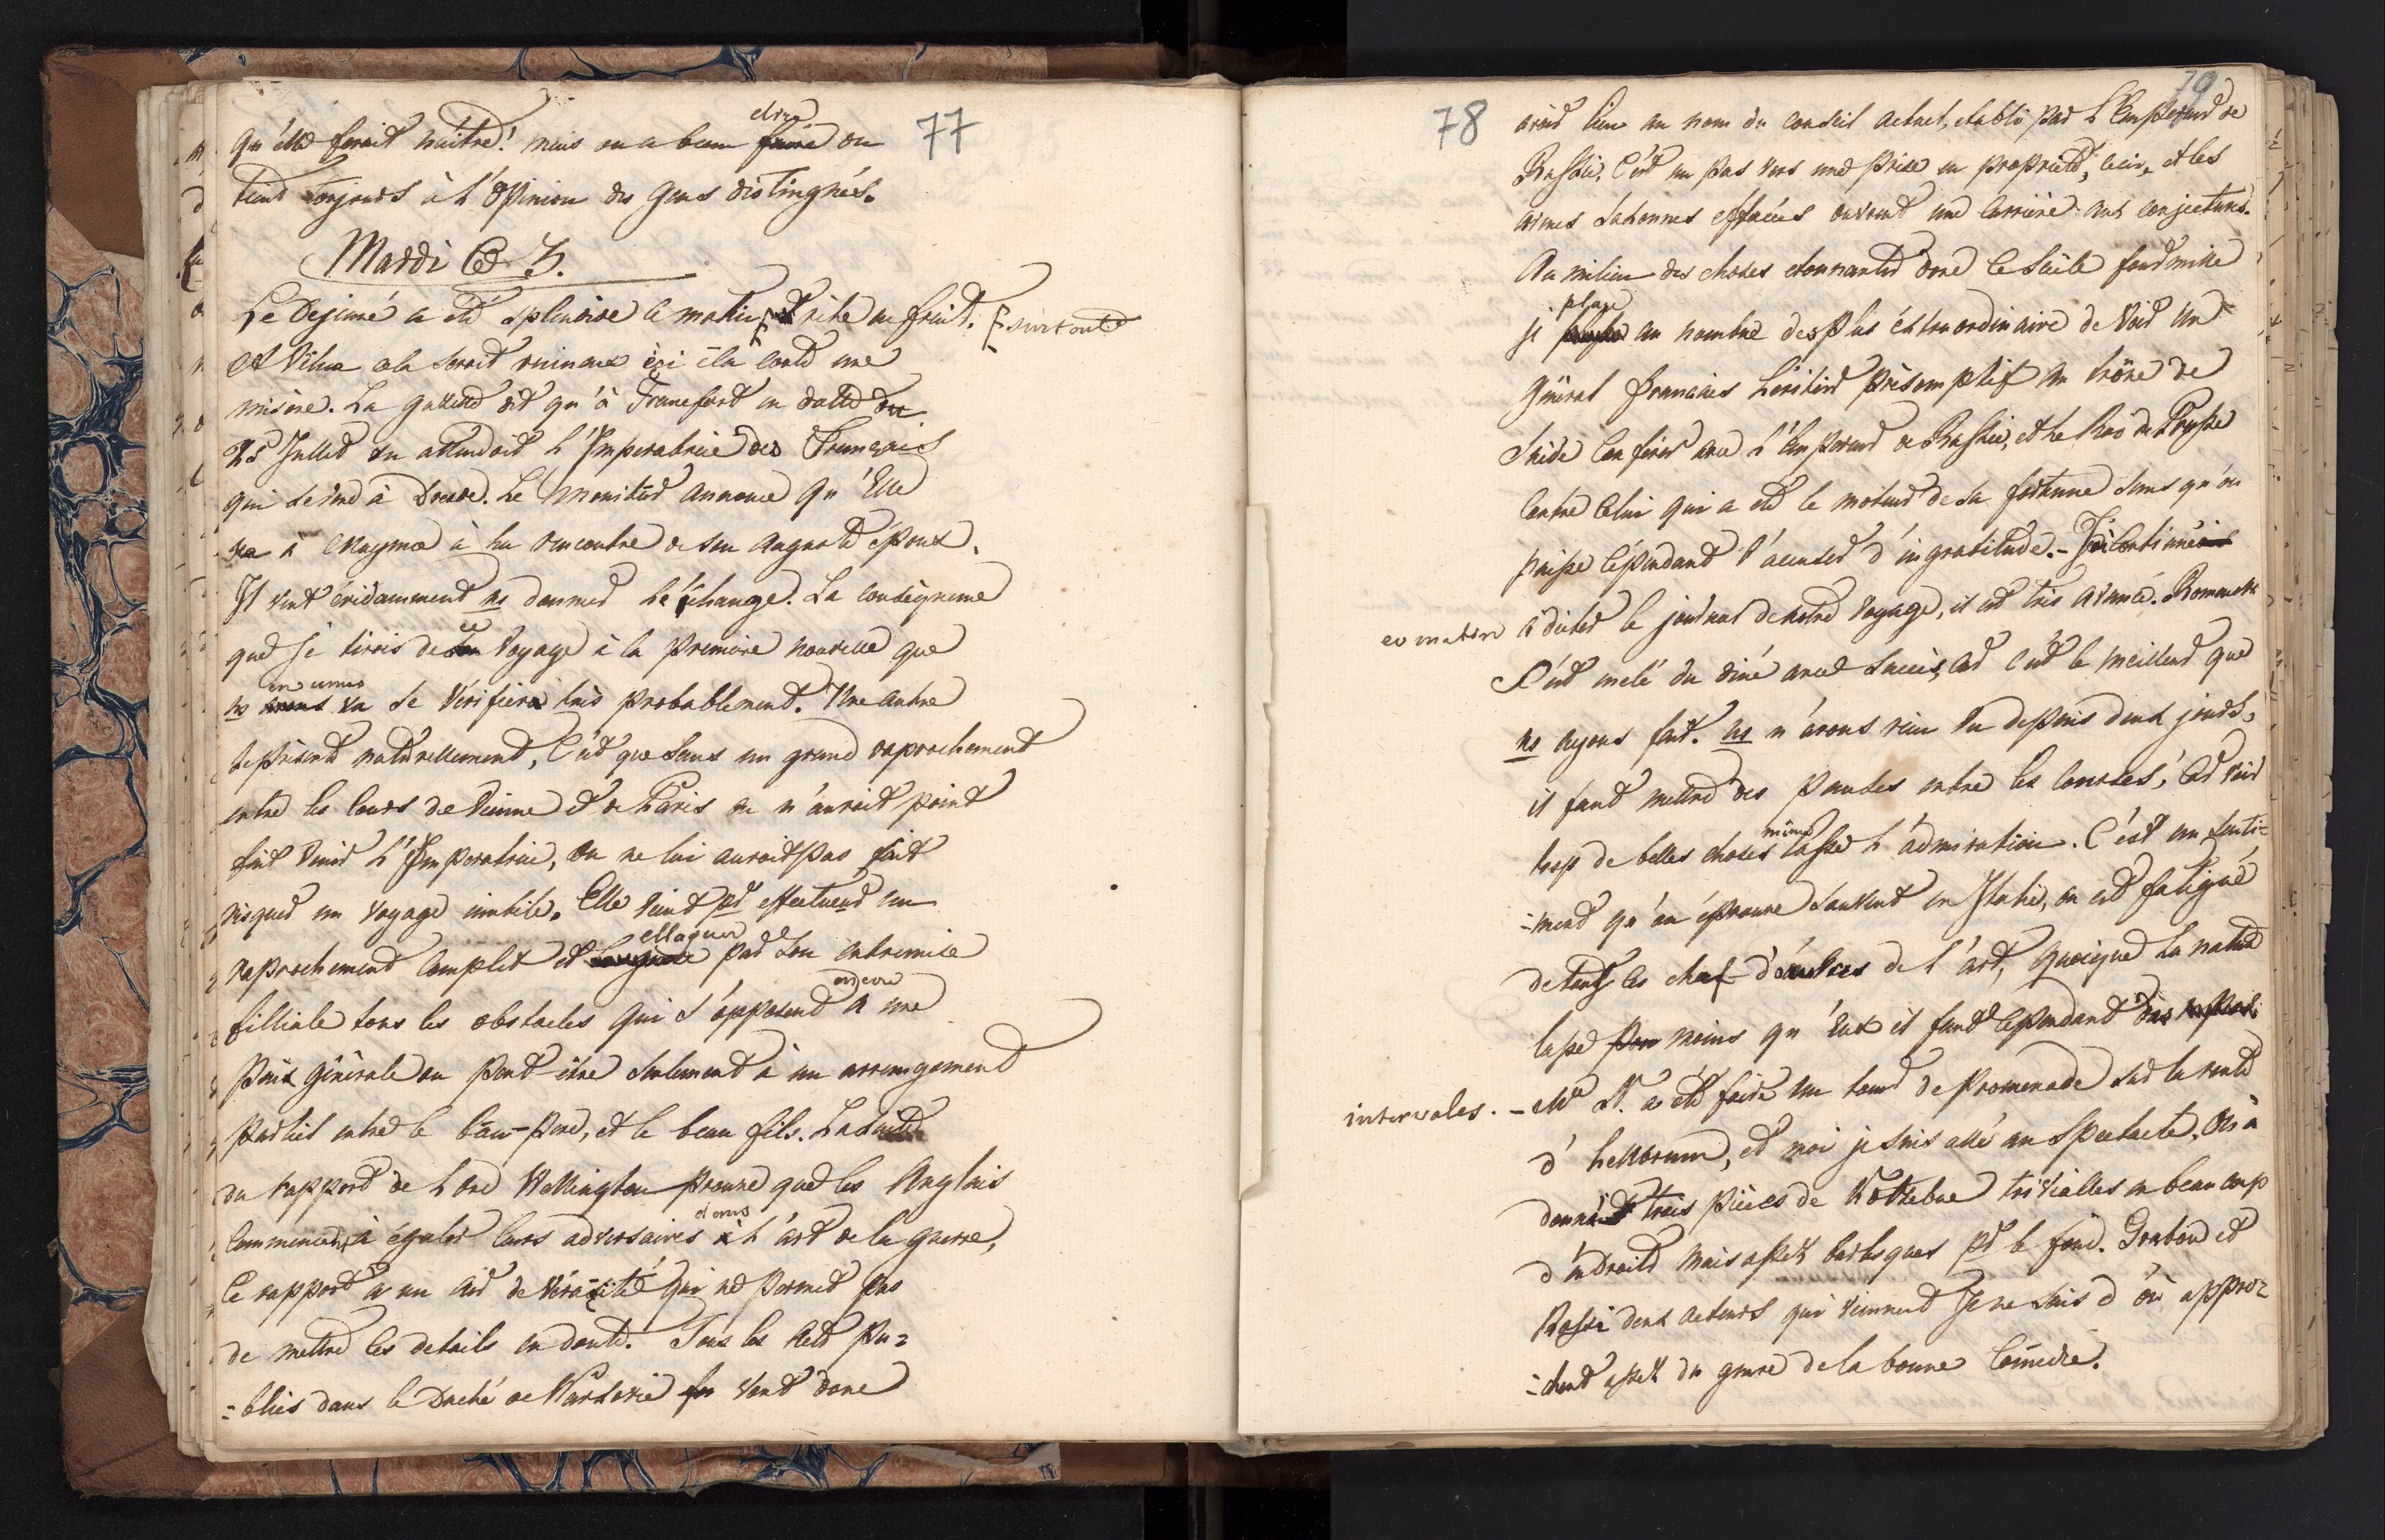 77
qu'elle feroit naitre! mais on a beau faire dire on
tient toujours à l'opinion des gens distingués.
Mardi Le 3.
Le Dejeuné a été splendide ce matin, et riche en fruit. surtout
A Vilna cela seroit ruineux ici cela coute une
misère. La gazette dit qu'à Francfort en datte du
25 Jullet on attendoit l'Imperatrice des Français
qui se rend à Dresde. Le Moniteur annonce qu'Elle
va à Mayence à la rencontre de son auguste époux.
Il vient évidamment ns donner le change. La conséquence
que je tirois de son ce Voyage à la premiere nouvelle que
ns avons en eumes se vérifiera très probablement. Une autre
se présente naturellement, C'est que sans un grand raprochement
entre les Cours de Vienne et de Paris on n'auroit point
fait venir l'Imperatrice, on ne lui auroit pas fait
risquer un voyage inutile. Elle vient pr effectuer un
raprochement complet et par son entremise
filliale tous les obstacles qui s'opposent encore a une
paix générale ou peut être seulement à un arrengement
partiel entre le beau-pere, et le beau fils. La
du rapport de Lord Wellington prouve que les Anglais
commencent à égaler leurs adversaires à dans l'art de la guerre,
Le rapport a un air de véracité qui ne permet pas
de mettre les details en doute. Tous les Acts pu=
=bliés dans le Duché de Warsovie se vont donc
78
79
avoir lieu au nom du conseil actuel, etabli par L'Empereur de
Russie. C'est un pas vers une prise en propriété; ceci, et les
armes Saxonnes effacées ouvrent une carrière aux conjectures.
Au milieu des choses etonnantes dont le Siècle fourmille
je place au nombre des plus éxtraordinaire de voir un
général Français héritier présomptif du trône de
Suède conférer avec l'Empereur de Russie, et le Roi de Prusse
contre celui qui a été le moteur de sa fortune sans qu'on
puisse cépendant l'accuser d'ingratitude. - J'ai continué
ce matin à dicter le journal de notre voyage, il est très avancé. Romanesk
s'est mele du diné avec succès, car c'est le meilleur que
ns ayons fait. ns n'avons rien vu depuis deux jours,
il faut mettre des pauses entre les courses; car voir
trop de belles choses même lasse l'admiration. C'est un senti=
=ment qu'on éprouve souvent en Italie, on est fatigué
de tous les chef d'œuvres de l'art, quoique la nature
lasse moins qu'eux il faut cependant des
intervales. - Me V. a été faire un tour de promenade sur la route
d'hellbrunn, et moi je suis allé au Spectacle. On a
donné trois pièces de Kotzebue trivialles en beaucoup
d'endroits mais assez burlesques pr le fond. Grabow et
Rossi deux acteurs qui viennent Je ne sais d'où appro=
=chent assez du genre de la bonne Comedie.